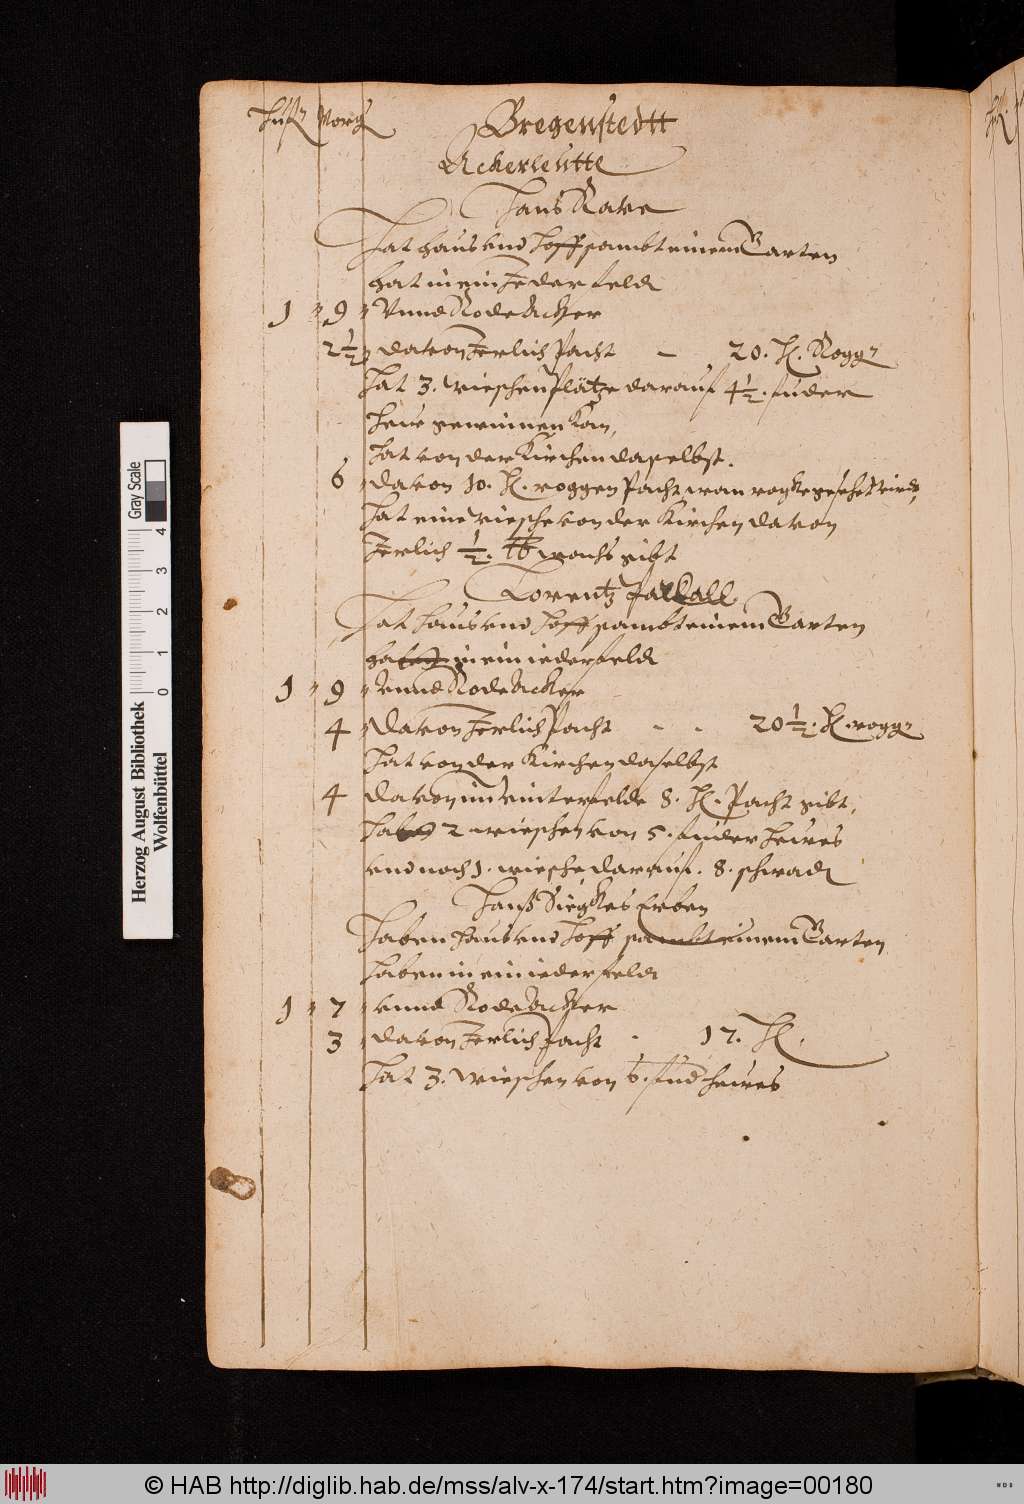 Huf. Morg.
Bregenstedtt
Ackerleutte
Hans Rave
Hat haus vnd Hoff sambt einem Garten
hat in ein Jeder feldt
1 " 9 " Vnnd Rode Acker
2 1/2 " davon Jerlich Pacht – 20. H. Rogg.
Hat 3. wieschen Plätze darauf 4 1/2. fuder
Heue gewinnen Kan,
Hat von der Kirchen daselbst.
6 davon 10. H. roggen Pacht wan
Hat eine wiesche von der Kirchen davon
Jerlich 1/2. lb wachs gibt
Lorentz
Hat Haus vnd Hoff sambt einem Garten
in ein ieder feldt
1 " 9 " vnnd Rode Acker
4 " Davon Jerlich Pacht - - 20 1/2. H. rogg.
Hat von der Kirchen daselbst
4 davon im winterfelde 8. H. Pacht gibt,
2 wieschen von 5. fuder Heues
vnd noch 1. wiesche darauf. 8. schwadt
Hanß Siegkes Erben
Haben Haus vnd Hoff sambt einem Garten
Haben in ein ieder feldt
1 " 7 " vnnd Rode Acker
3 davon Jerlich Pacht - 17. H.
Hat 3. wieschen von 6. fud Heues
Gray Scale
0 1 2 3 4
Herzog August Bibliothek
Wolfenbüttel
© HAB http://diglib.hab.de/mss/alv-x-174/start.htm?image=00180